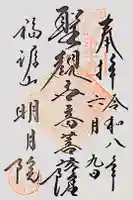 奉拝
令和八年
六月九日
聖観世音菩薩
福源山
明月院